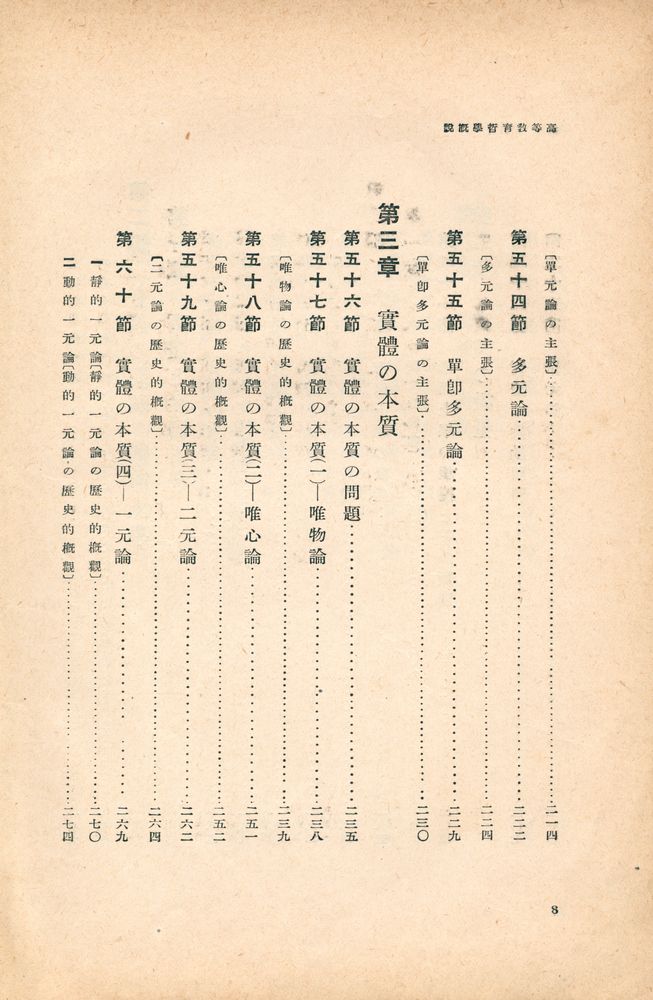 高等教育哲學概說
〔單元論の主張〕……二一四
第五十四節　多元論……二二二
〔多元論の主張〕……二二四
第五十五節　單卽多元論……二二九
〔單卽多元論の主張〕……二三〇
第三章　實體の本质
第五十六節　實體の本質の問題……二三五
第五十七節　實體の本質(一)—唯物論……二三八
〔唯物論の歷史的槪觀〕……二三九
第五十八節　實體の本質(二)—唯心論……二五一
〔唯心論の歷史的槪觀〕……二五二
第五十九節　實體の本質(三)—二元論……二六二
〔二元論の歷史的槪觀〕……二六四
第六十節　實體の本質(四)—一元論……二六九
一　靜的一元論〔靜的一元論の歷史的槪觀〕……二七〇
二　動的一元論〔動的一元論の歷史的槪觀〕……二七四
8